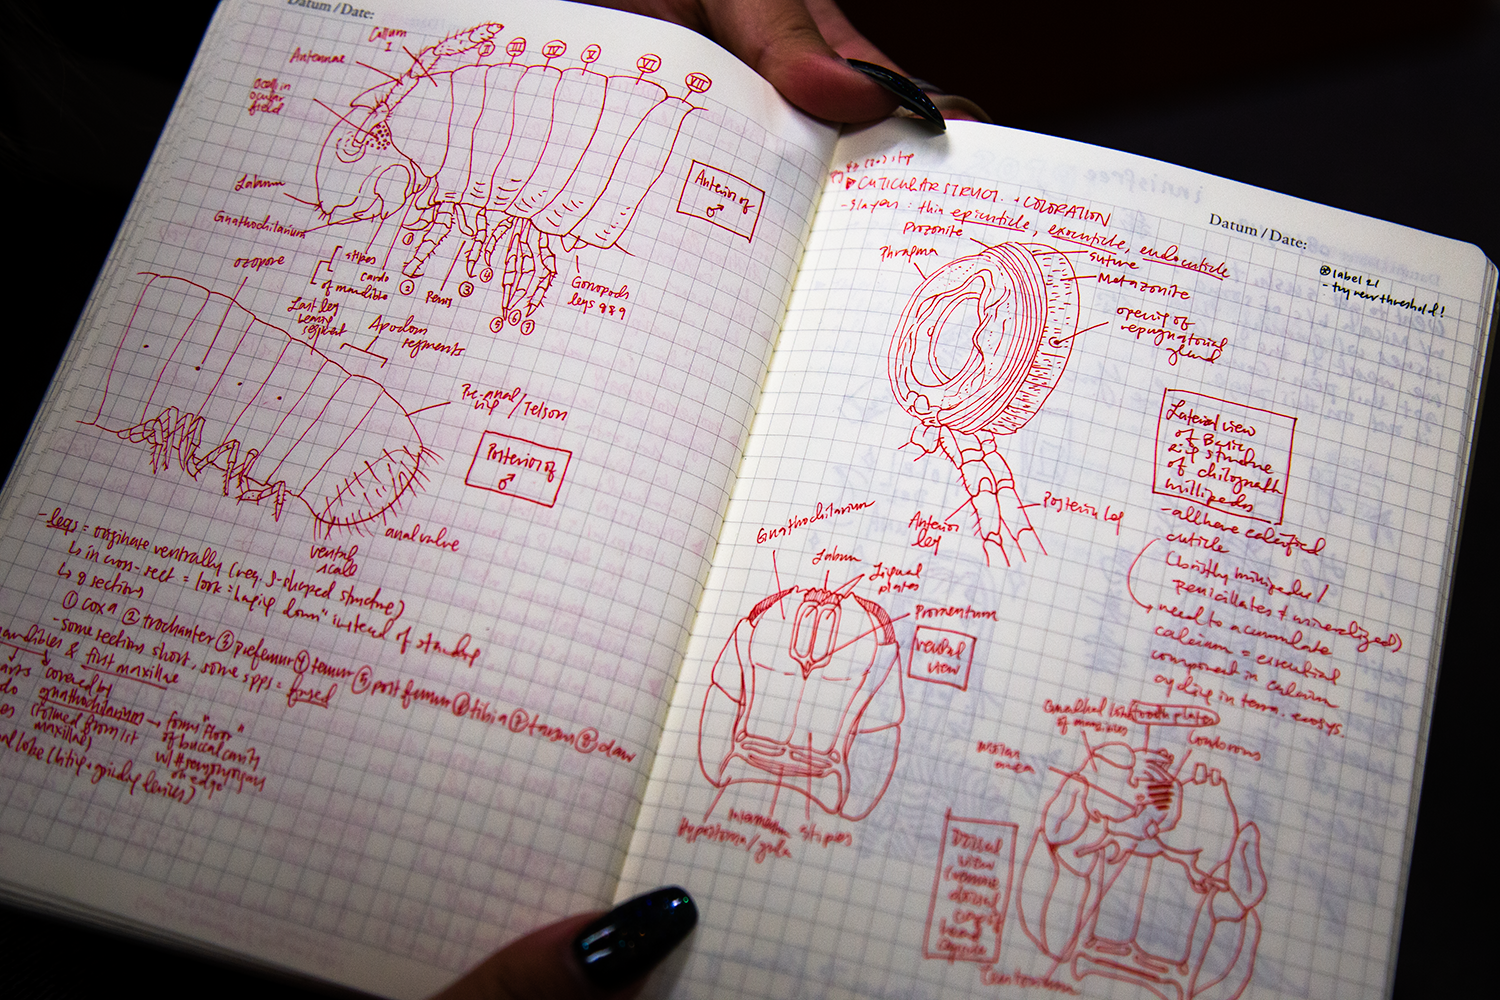 Datum / Date:
Collum
I
II
III
IV
V
VI
VII
Antennae
Ocelli in
ocular
field
Labrum
Gnathochilarium
stipes
cardo
of mandible
①
②
Penis
③
④
⑤ ⑥ ⑦
Gonopods
legs 8&9
Anterior of
♂
ozopore
Last leg
bearing
segment
Apodous
segments
Pre-anal / Telson
ring
Posterior of
♂
anal valve
ventral
scale
- legs = originate ventrally (req. S-shaped structure)
↳ in cross-sect = look "hanging down" instead of standing
↳ 8 sections
① coxa ② trochanter ③ prefemur ④ femur ⑤ postfemur ⑥ tibia ⑦ tarsus ⑧ claw
- some sections short, some spps = fused
& first maxillae
covered by
gnathochilarium → forms "floor"
(formed from 1st
maxillae)
of buccal cavity
w/ # sensory organs
on edge
lobe (biting + grinding devices)
CUTICULAR STRUCT. + COLORATION
- 3 layers: thin epicuticle, exocuticle, endocuticle
Datum / Date:
label 21
- try new threshold!
Prozonite
Phragma
suture
Metazonite
opening of
repugnatorial
gland
Anterior
leg
Posterior leg
Lateral view
of Basic
ring structure
of chilognath
millipedes
- all have calcified
cuticle
(bristly millipedes /
penicillates ≠ mineralized)
need to accumulate
calcium = essential
component in calcium
cycling in terr. ecosys.
Gnathochilarium
Labrum
Lingual
plates
Promentum
ventral
view
Hypostoma/gula
stipes
tooth plates
of mandibles
Condylus
molar
area
Dorsal
view
(remove
dorsal
head
capsule
Tentorium